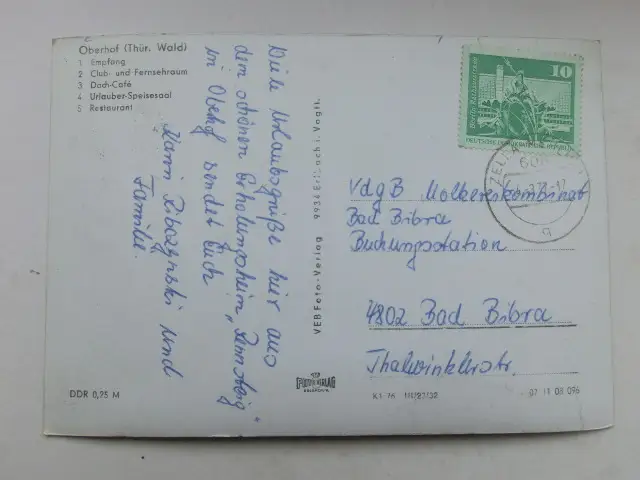 Oberhof (Thür. Wald)
1 Empfang
2 Club- und Fernsehraum
3 Dach-Café
4 Urlauber-Speisesaal
5 Restaurant
Viele Urlaubsgrüße hier aus
dem schönen Erholungsheim „Rennsteig"
in Oberhof sendet Euch
und
Familie.
DDR 0,95 M
VEB Foto-Verlag 9934 Erlbach i. Vogtl.
10
Berlin
DEUTSCHE DEMOKRATISCHE REPUBLIK
ZELLA
VdgB Molkereikombinat
Bad Bibra
Buchungsstation
4802 Bad Bibra
Thalwinklerstr.
K1 76
07 11 08 096